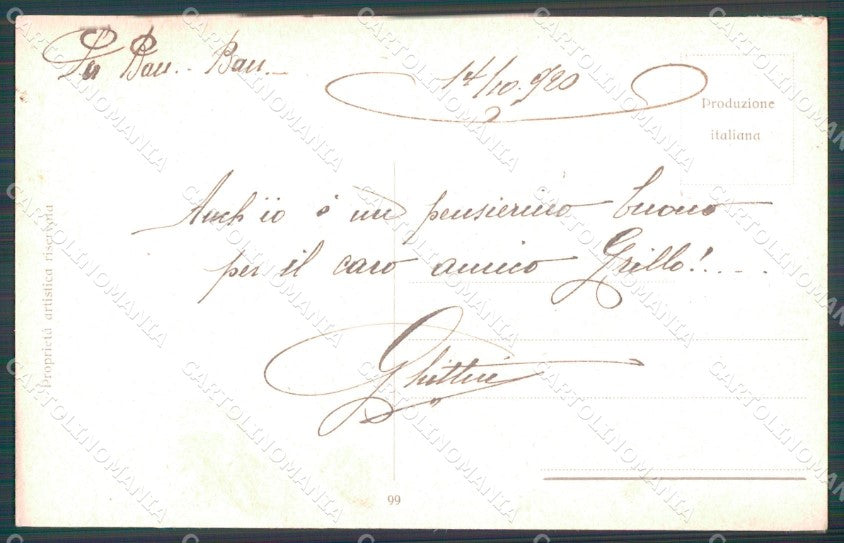 Bau.. Bau._
14/10.920
Produzione
italiana
Anch'io ò un pensierino buono
per il caro amico Grillo!....
Proprietà artistica riservata
99
CARTOLINOMANIA